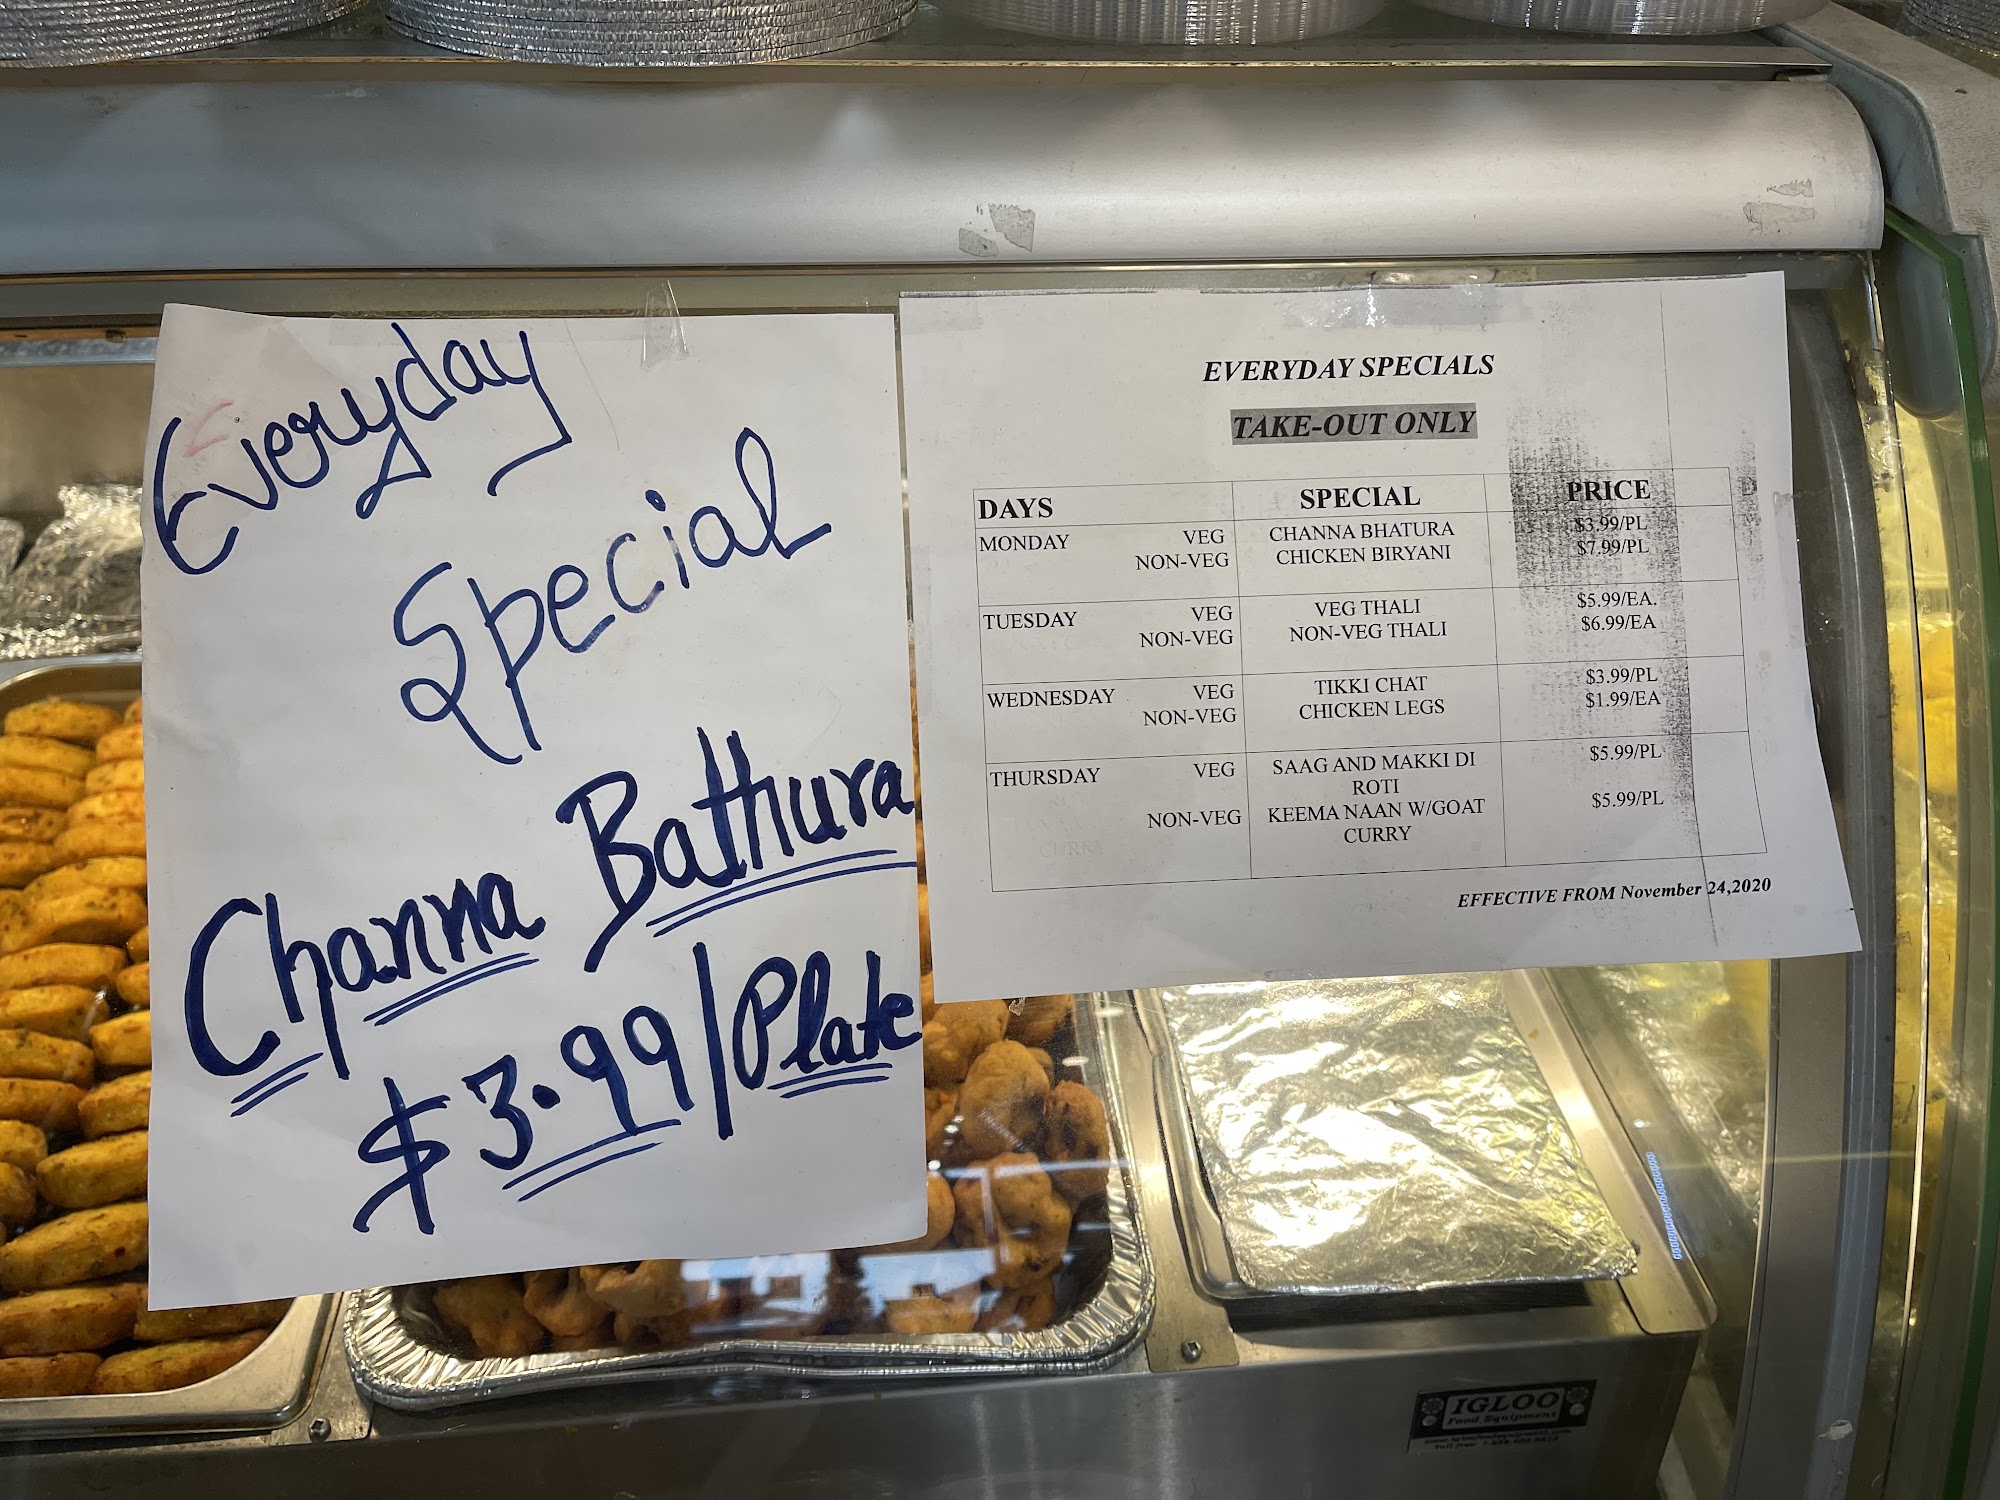 Everyday
Special
Channa Bathura
$3.99/Plate
EVERYDAY SPECIALS
TAKE-OUT ONLY
DAYS SPECIAL PRICE
MONDAY VEG CHANNA BHATURA $3.99/PL
NON-VEG CHICKEN BIRYANI $7.99/PL
TUESDAY VEG VEG THALI $5.99/EA.
NON-VEG NON-VEG THALI $6.99/EA
WEDNESDAY VEG TIKKI CHAT $3.99/PL
NON-VEG CHICKEN LEGS $1.99/EA
THURSDAY VEG SAAG AND MAKKI DI $5.99/PL
ROTI
NON-VEG KEEMA NAAN W/GOAT $5.99/PL
CURRY
EFFECTIVE FROM November 24,2020
IGLOO
Food Equipment